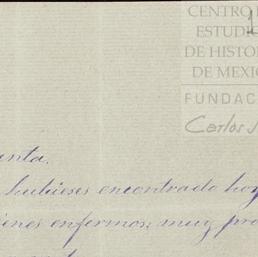 CENTRO
ESTUDI
DE HISTOR
DE MEXIC
FUNDAC
Carlos
unta.
hubieses encontrado hoy
ienes enfermos; muy pro